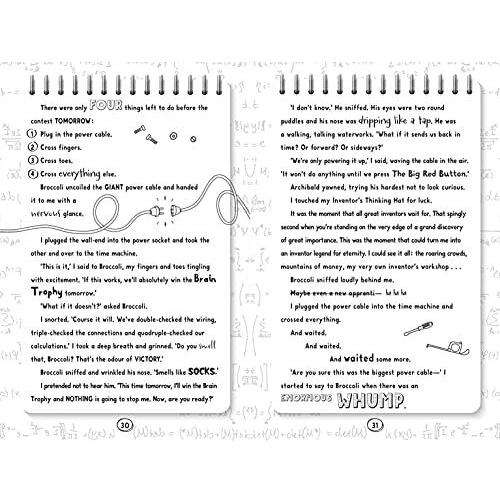 There were only FOUR things left to do before the
contest TOMORROW:
1 Plug in the power cable.
2 Cross fingers.
3 Cross toes.
4 Cross everything else.
Broccoli uncoiled the GIANT power cable and handed
it to me with a
nervous glance.
I plugged the wall-end into the power socket and took the
other end over to the time machine.
'This is it,' I said to Broccoli, my fingers and toes tingling
with excitement. 'If this works, we'll absolutely win the Brain
Trophy tomorrow.'
'What if it doesn't?' asked Broccoli.
I snorted. 'Course it will. We've double-checked the wiring,
triple-checked the connections and quadruple-checked our
calculations.' I took a deep breath and grinned. 'Do you smell
that, Broccoli? That's the odour of VICTORY.'
Broccoli sniffed and wrinkled his nose. 'Smells like SOCKS.'
I pretended not to hear him. 'This time tomorrow, I'll win the Brain
Trophy and NOTHING is going to stop me. Now, are you ready?'
30
'I don't know,' He sniffed. His eyes were two round
puddles and his nose was dripping like a tap. He was
a walking, talking waterworks. 'What if it sends us back in
time? Or forward? Or sideways?'
'We're only powering it up,' I said, waving the cable in the air.
'It won't do anything until we press The Big Red Button.'
Archibald yawned, trying his hardest not to look curious.
I touched my Inventor's Thinking Hat for luck.
It was the moment that all great inventors wait for. That spingly
second when you're standing on the very edge of a grand discovery
of great importance. This was the moment that could turn me into
an inventor legend for eternity. I could see it all: the roaring crowds,
mountains of money, my very own inventor's workshop . . .
Broccoli sniffed loudly behind me.
Maybe even a new apprenti— ha ha ha
I plugged the power cable into the time machine and
crossed everything.
And waited.
And waited.
And waited some more.
'Are you sure this was the biggest power cable—' I
started to say to Broccoli when there was an
ENORMOUS WHUMP.
31